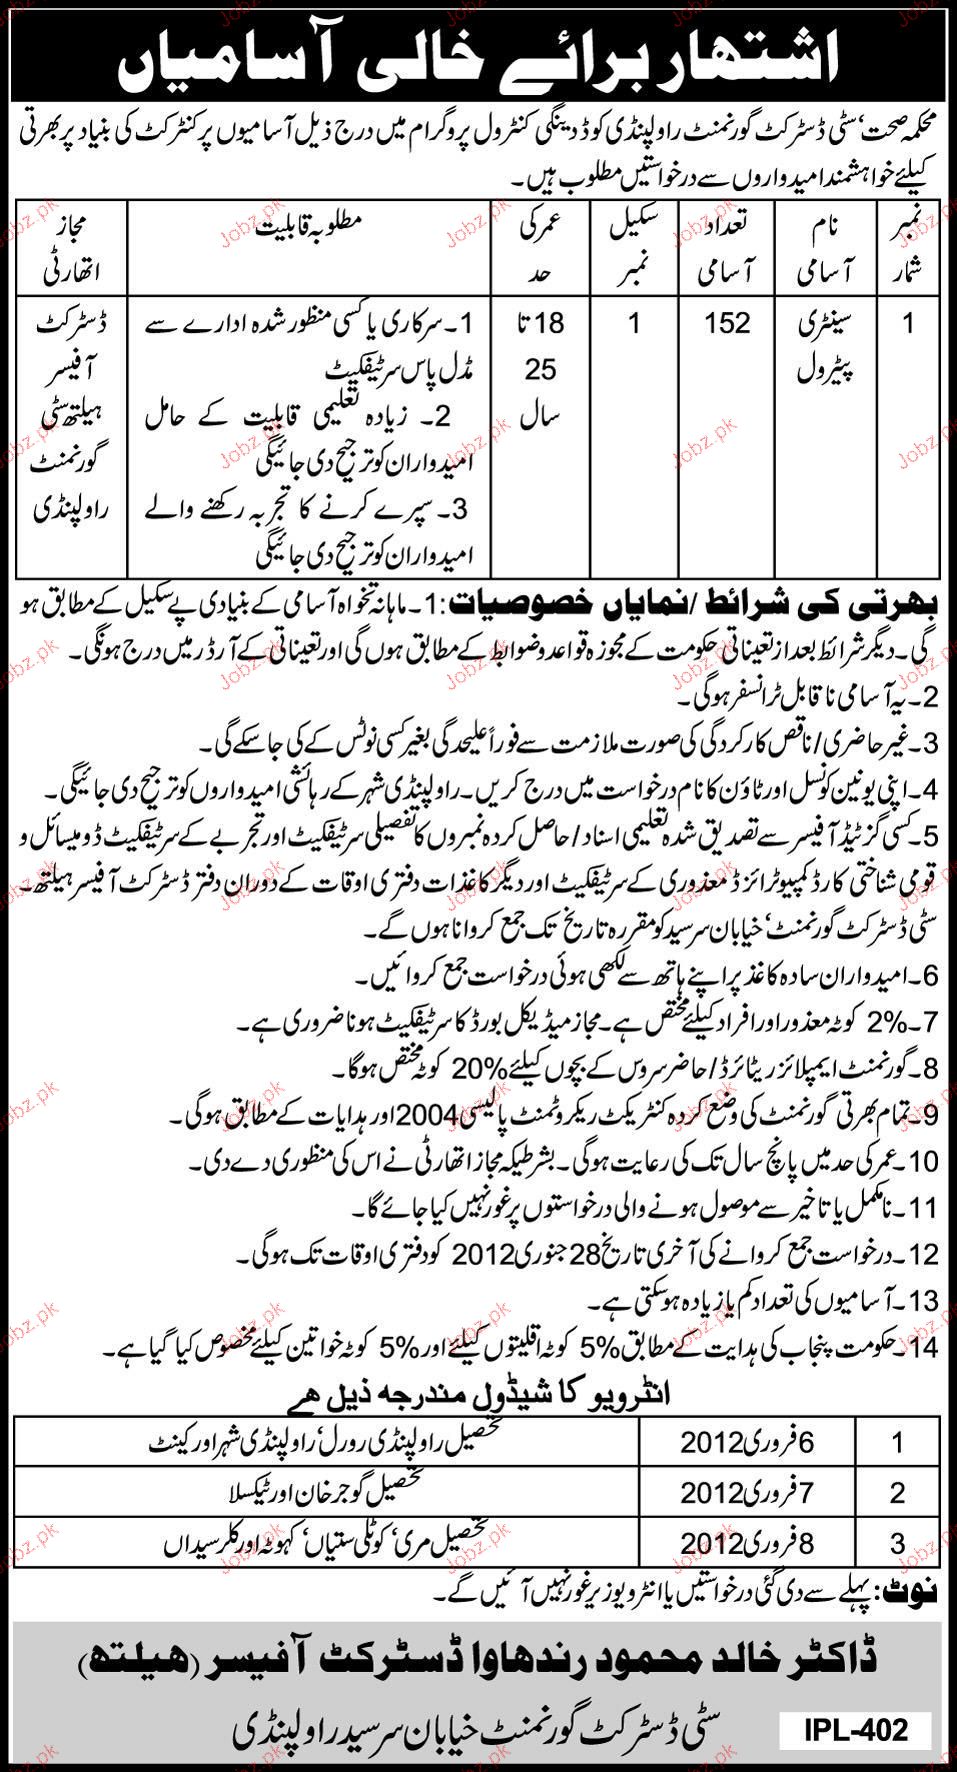 اشتہار برائے خالی آسامیاں
محکمہ صحت، سٹی ڈسٹرکٹ گورنمنٹ راولپنڈی کو ڈینگی کنٹرول پروگرام میں درج ذیل آسامیوں پر کنٹرکٹ کی بنیاد پر بھرتی
کیلئے خواہشمند امیدواروں سے درخواستیں مطلوب ہیں۔
نمبر شمار | نام آسامی | تعداد آسامی | سکیل نمبر | عمر کی حد | مطلوبہ قابلیت | مجاز اتھارٹی
1 | سینٹری پیٹرول | 152 | 1 | 18 تا 25 سال | 1۔ سرکاری یا کسی منظور شدہ ادارے سے | ڈسٹرکٹ آفیسر ہیلتھ سٹی گورنمنٹ راولپنڈی
مڈل پاس سرٹیفکیٹ
2۔ زیادہ تعلیمی قابلیت کے حامل
امیدواران کو ترجیح دی جائیگی
3۔ سپرے کرنے کا تجربہ رکھنے والے
امیدواران کو ترجیح دی جائیگی
بھرتی کی شرائط/نمایاں خصوصیات: 1۔ ماہانہ تنخواہ آسامی کے بنیادی پے سکیل کے مطابق ہو
گی۔ دیگر شرائط بعد از تعیناتی حکومت کے مجوزہ قواعد و ضوابط کے مطابق ہوں گی اور تعیناتی کے آرڈر میں درج ہونگی۔
2۔ یہ آسامی ناقابل ٹرانسفر ہوگی۔
3۔ غیر حاضری/ناقص کارکردگی کی صورت ملازمت سے فوراً علیحدگی بغیر کسی نوٹس کے کی جا سکے گی۔
4۔ اپنی یونین کونسل اور ٹاؤن کا نام درخواست میں درج کریں۔ راولپنڈی شہر کے رہائشی امیدواروں کو ترجیح دی جائیگی۔
5۔ کسی گزٹیڈ آفیسر سے تصدیق شدہ تعلیمی اسناد/حاصل کردہ نمبروں کا تفصیلی سرٹیفکیٹ اور تجربے کے سرٹیفکیٹ ڈومیسائل و
قومی شناختی کارڈ کمپیوٹرائزڈ معذوری کے سرٹیفکیٹ اور دیگر کاغذات دفتری اوقات کے دوران دفتر ڈسٹرکٹ آفیسر ہیلتھ۔
سٹی ڈسٹرکٹ گورنمنٹ، خیابان سرسید کو مقررہ تاریخ تک جمع کروانا ہوں گے۔
6۔ امیدواران سادہ کاغذ پر اپنے ہاتھ سے لکھی ہوئی درخواست جمع کروائیں۔
7۔ 2% کوٹہ معذور اور افراد کیلئے مختص ہے۔ مجاز میڈیکل بورڈ کا سرٹیفکیٹ ہونا ضروری ہے۔
8۔ گورنمنٹ ایمپلائز ریٹائرڈ/حاضر سروس کے بچوں کیلئے 20% کوٹہ مختص ہوگا۔
9۔ تمام بھرتی گورنمنٹ کی وضع کردہ کنٹریکٹ ریکروٹمنٹ پالیسی 2004 اور ہدایات کے مطابق ہوگی۔
10۔ عمر کی حد میں پانچ سال تک کی رعایت ہوگی۔ بشرطیکہ مجاز اتھارٹی نے اس کی منظوری دے دی۔
11۔ نامکمل یا تاخیر سے موصول ہونے والی درخواستوں پر غور نہیں کیا جائے گا۔
12۔ درخواست جمع کروانے کی آخری تاریخ 28 جنوری 2012 کو دفتری اوقات تک ہوگی۔
13۔ آسامیوں کی تعداد کم یا زیادہ ہو سکتی ہے۔
14۔ حکومت پنجاب کی ہدایت کے مطابق 5% کوٹہ اقلیتوں کیلئے اور 5% کوٹہ خواتین کیلئے مخصوص کیا گیا ہے۔
انٹرویو کا شیڈول مندرجہ ذیل ہے
1 | 6 فروری 2012 | تحصیل راولپنڈی رورل، راولپنڈی شہر اور کینٹ
2 | 7 فروری 2012 | تحصیل گوجر خان اور ٹیکسلا
3 | 8 فروری 2012 | تحصیل مری، کوٹلی ستیاں، کہوٹہ اور کلر سیداں
نوٹ: پہلے سے دی گئی درخواستیں یا انٹرویو زیر غور نہیں آئیں گے۔
ڈاکٹر خالد محمود رندھاوا ڈسٹرکٹ آفیسر (ہیلتھ)
سٹی ڈسٹرکٹ گورنمنٹ خیابان سرسید راولپنڈی
IPL-402
Jobz.pk